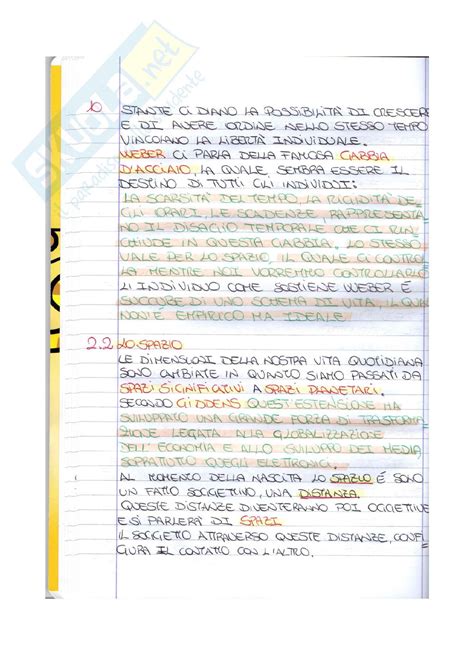 STANTE CI DIANO LA POSSIBILITA' DI CRESCERE
E DI AVERE ORDINE NELLO STESSO TEMPO
VINCOLANO LA LIBERTÀ INDIVIDUALE.
WEBER CI PARLA DELLA FAMOSA GABBIA
D'ACCIAIO, LA QUALE, SEMBRA ESSERE IL
DESTINO DI TUTTI GLI INDIVIDUI:
LA SCARSITÀ DEL TEMPO, LA RIGIDITÀ DE
GLI ORARI, LE SCADENZE, RAPPRESENTA
NO IL DISAGIO TEMPORALE CHE CI RIN
CHIUDE IN QUESTA GABBIA. LO STESSO
VALE PER LO SPAZIO, IL QUALE CI CONTROL
LA MENTRE NOI VORREMMO CONTROLLARLO
L'INDIVIDUO COME SOSTIENE WEBER È
SUCCUBE DI UNO SCHEMA DI VITA, IL QUAL
NON È EMPIRICO MA IDEALE
2.2 LO SPAZIO
LE DIMENSIONI DELLA NOSTRA VITA QUOTIDIANA
SONO CAMBIATE IN QUANTO SIAMO PASSATI DA
SPAZI SIGNIFICATIVI A SPAZI PLANETARI.
SECONDO GIDDENS QUEST'ESTENSIONE HA
SVILUPPATO UNA GRANDE FORZA DI TRASFORMA
ZIONE LEGATA ALLA GLOBALIZZAZIONE
DELL'ECONOMIA E ALLO SVILUPPO DEI MEDIA,
SOPRATTUTTO QUEGLI ELETTRONICI.
AL MOMENTO DELLA NASCITA LO SPAZIO È SONO
UN FATTO SOGGETTIVO, UNA DISTANZA.
QUESTE DISTANZE DIVENTERANNO POI OGGETTIVE
E SI PARLERÀ DI SPAZI
IL SOGGETTO ATTRAVERSO QUESTE DISTANZE, CONFI
GURA IL CONTATTO CON L'ALTRO.